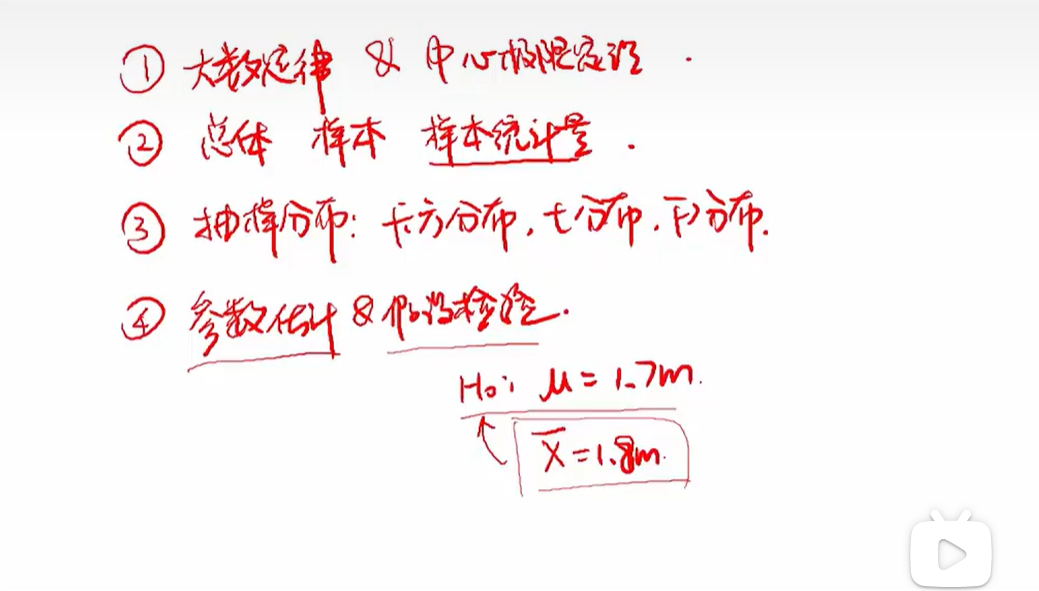 ① 大数定律 & 中心极限定理.
② 总体 样本 样本统计量.
③ 抽样分布: 卡方分布, t分布, F分布.
④ 参数估计 & 假设检验.
H₀: μ = 1.7m.
X̄ = 1.8m.